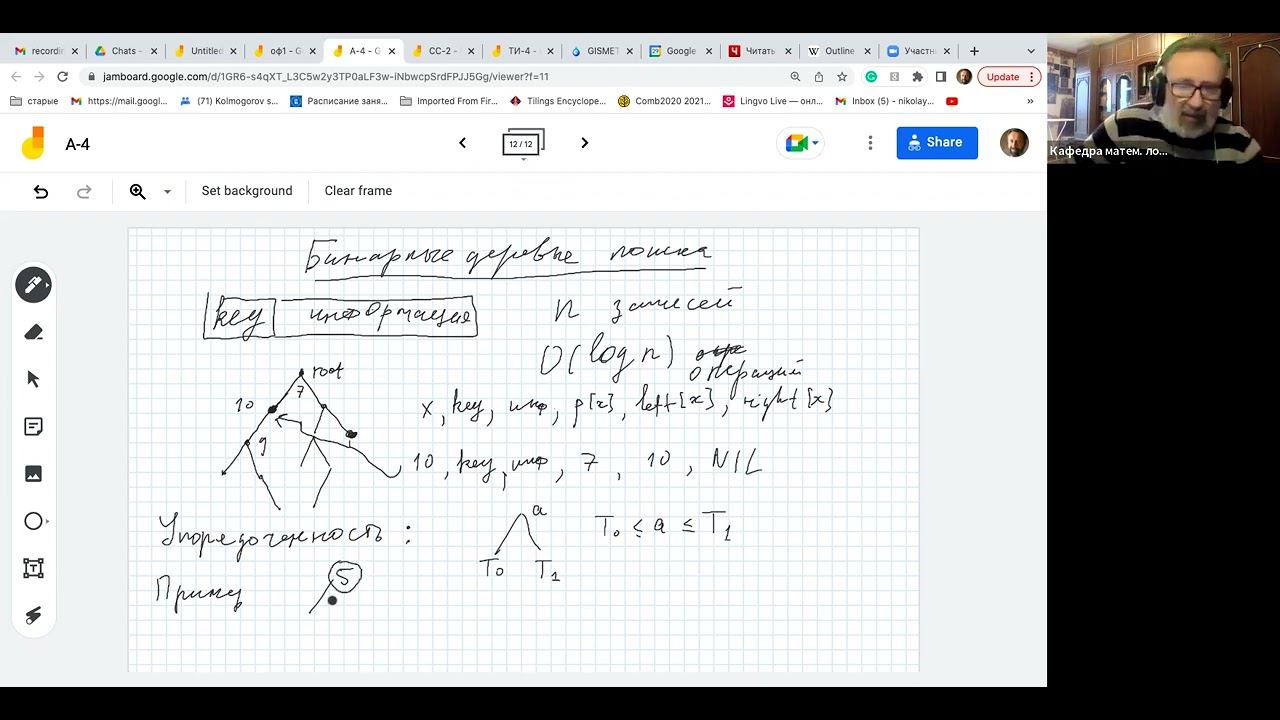 recordin
Chats -
Untitled
оф1 - G
А-4 - G
СС-2 -
ТИ-4 -
GISMET
Google
Читать
Outline
Участн
jamboard.google.com/d/1GR6-s4qXT_L3C5w2y3TP0aLF3w-iNbwcpSrdFPJJ5Gg/viewer?f=11
Update
старые
https://mail.googl...
(71) Kolmogorov s...
Расписание заня...
Imported From Fir...
Tilings Encyclope...
Comb2020 2021...
Lingvo Live — онл...
Inbox (5) - nikolay...
»
А-4
12 / 12
Share
Set background
Clear frame
Кафедра матем. ло...
Бинарные деревья поиска
key информация
n записей
O(log n)
операций
root
7
10
9
x, key, инф, p[x], left[x], right[x]
10, key, инф, 7, 10, NIL
Упорядоченность:
a
T0 T1
T0 ≤ a ≤ T1
Пример
5